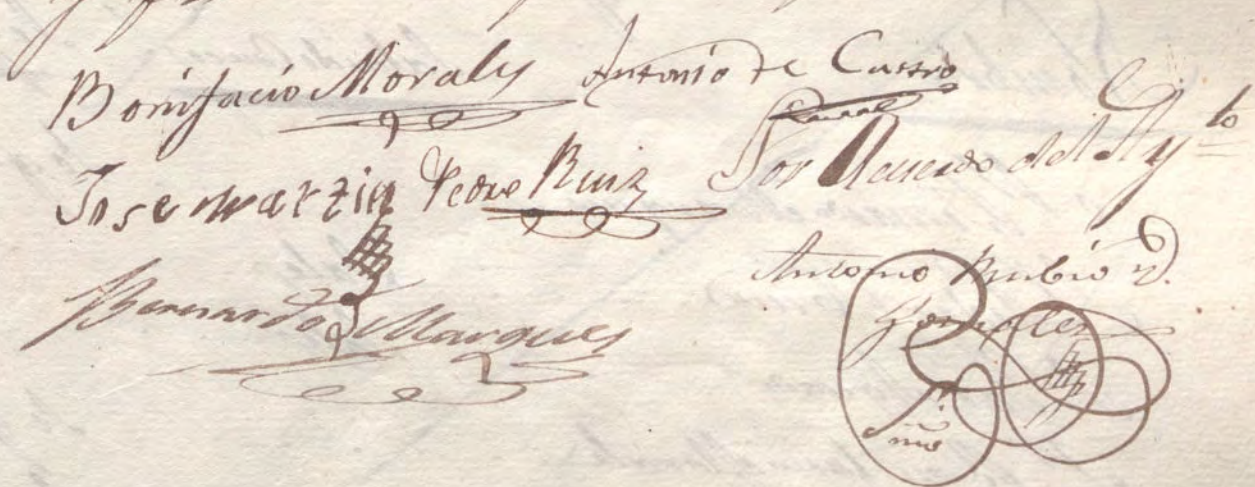 Bonifacio Morales Antonio de Castro
Jose martin Pedro Ruiz Por Acuerdo del Ay.to
Bernardo Marques Antonio Rubio
Gonzalez